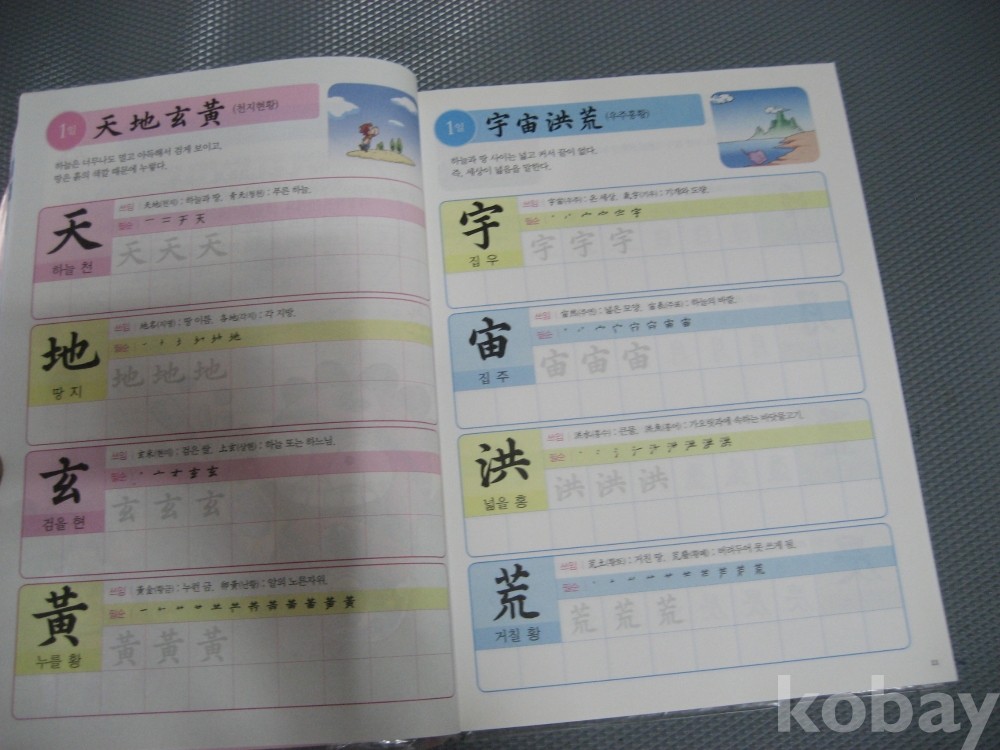 1일 天地玄黃 (천지현황)
하늘은 너무나도 멀고 아득해서 검게 보이고,
땅은 흙의 색깔 때문에 누렇다.
天
하늘 천
쓰임 天地(천지) : 하늘과 땅, 靑天(청천) : 푸른 하늘.
필순 一 二 チ 天
天 天 天
地
땅 지
쓰임 地名(지명) : 땅 이름, 各地(각지) : 각 지방.
필순
地 地 地
玄
검을 현
쓰임 玄米(현미) : 검은 쌀, 上玄(상현) : 하늘 또는 하느님.
필순
玄 玄 玄
黃
누를 황
쓰임 黃金(황금) : 누런 금, 卵黃(난황) : 알의 노른자위.
필순
黃 黃 黃
1일 宇宙洪荒 (우주홍황)
하늘과 땅 사이는 넓고 커서 끝이 없다.
즉, 세상이 넓음을 말한다.
宇
집 우
쓰임 宇宙(우주) : 온 세상, 氣宇(기우) : 기개와 도량.
필순
宇 宇 宇
宙
집 주
쓰임 : 넓은 모양, : 하늘의 바람.
필순
宙 宙 宙
洪
넓을 홍
쓰임 洪水(홍수) : 큰물, 洪魚(홍어) : 가오릿과에 속하는 바닷물고기.
필순
洪 洪 洪
荒
거칠 황
쓰임 荒土(황토) : 거친 땅, 荒廢(황폐) : 버려두어 못 쓰게 됨.
필순
荒 荒 荒
kobay